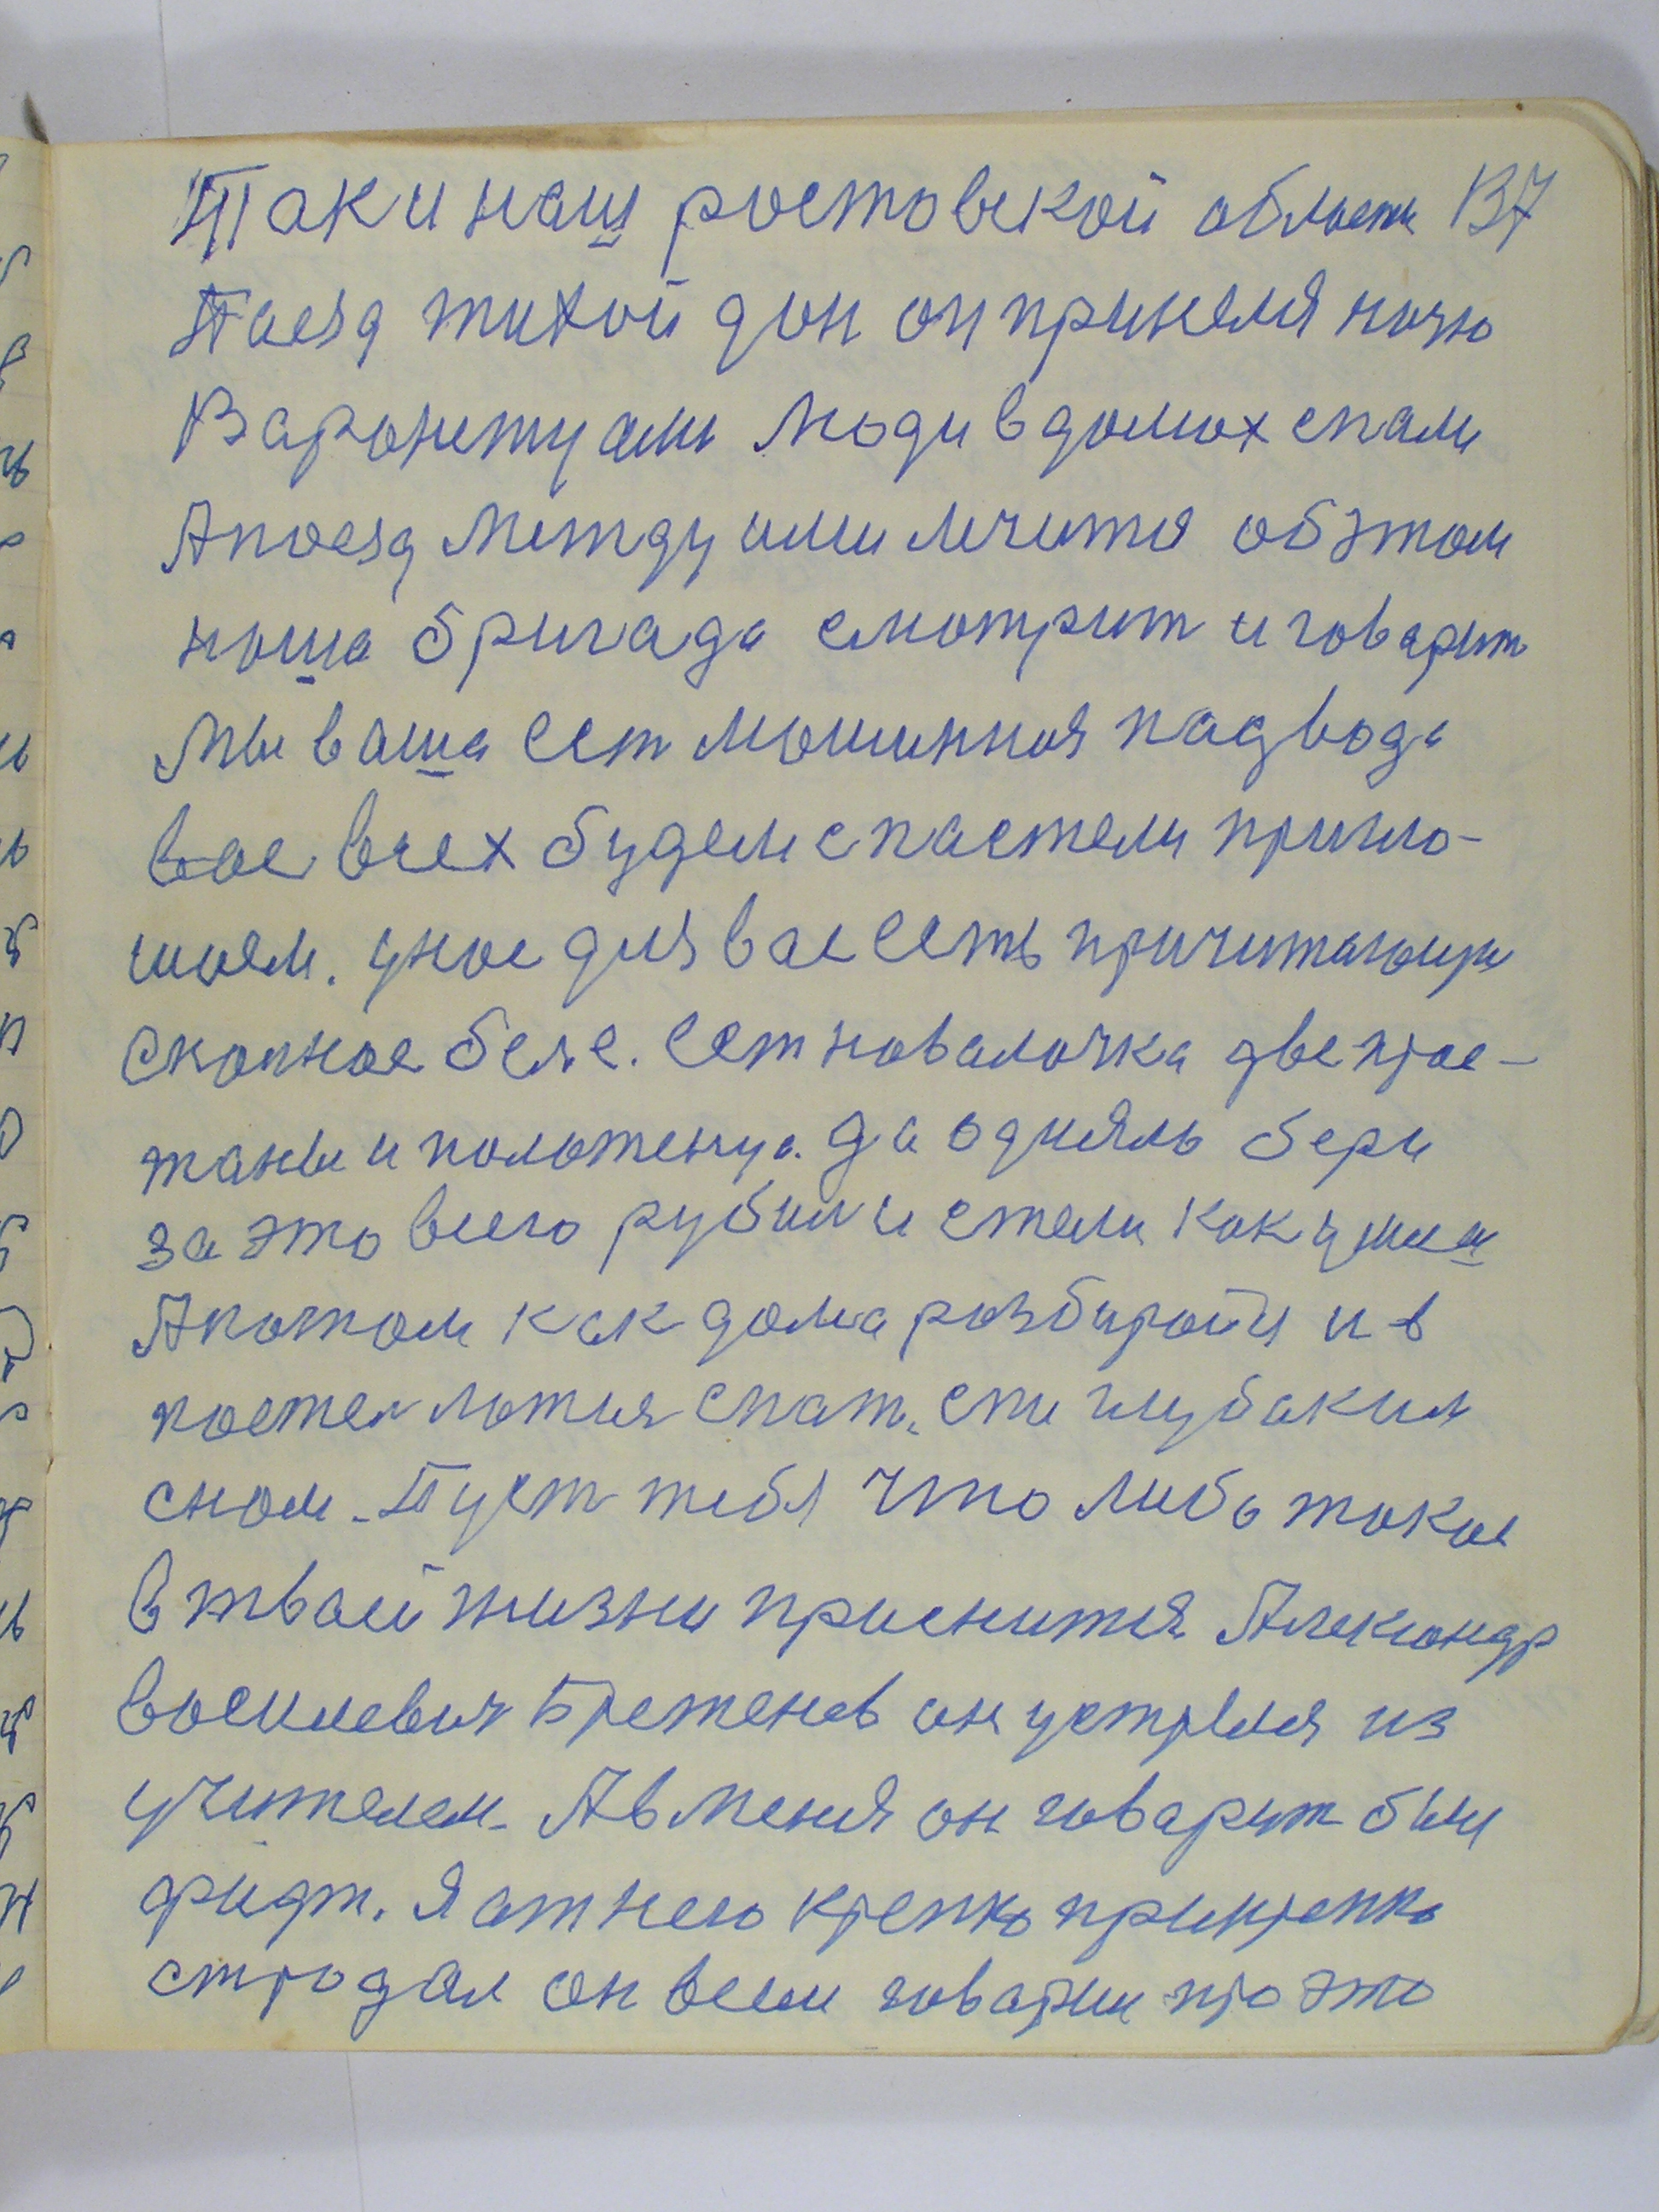 Так и наш ростовской области 137
Паезд тихой дон он принялся ночю
Варонежу али Люди в домах спали
А поезд Между ими мчится об этом
наша бригада смотрит и говарит
Мы ваша Сест падвода
вас всех будем спастели пригло-
шаем. у нас для вас Есть
Скопное беле. Ест новалочка две прос-
тани и полотенца. да одияль бери
за это всего рубил и стели как умиш
А потом как дома розбирайся и в
постел ложися Спат. спи глубаким
сном. Пуст тебя что Либо такое
в твоей жизни приснится. Александр
Василевич Бреженев он устрелся из
учителем. А в меня он говарит был
фидт. Я от него крепко прикрепко
стродал он всем говарил про это